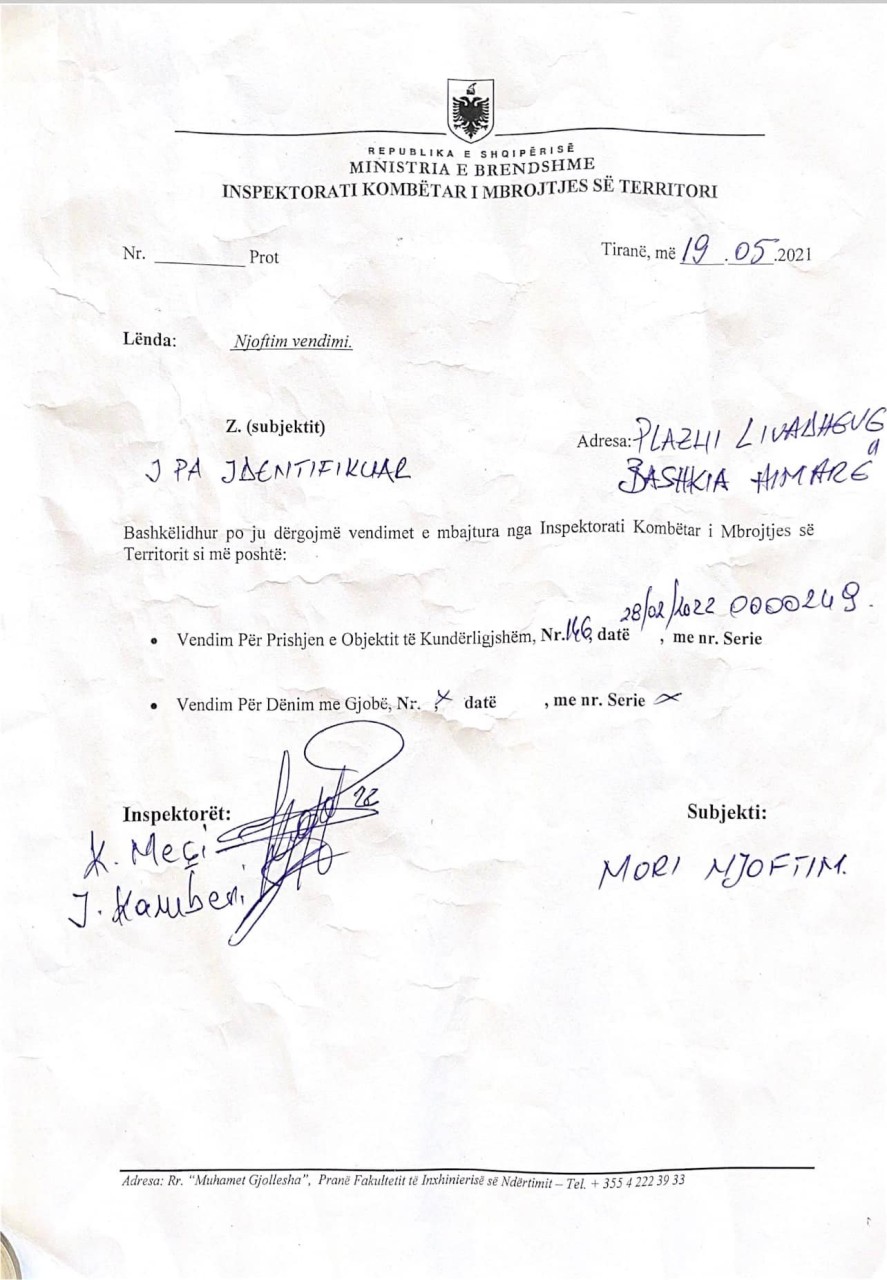 REPUBLIKA E SHQIPËRISË
MINISTRIA E BRENDSHME
INSPEKTORATI KOMBËTAR I MBROJTJES SË TERRITORI
Nr. _________ Prot
Tiranë, më 19.05.2021
Lënda: Njoftim vendimi.
Z. (subjektit)
I PA IDENTIFIKUAR
Adresa: PLAZHI LIVADHEVE
BASHKIA HIMARË
Bashkëlidhur po ju dërgojmë vendimet e mbajtura nga Inspektorati Kombëtar i Mbrojtjes së
Territorit si më poshtë:
• Vendim Për Prishjen e Objektit të Kundërligjshëm, Nr.146, datë 28/02/2022, me nr. Serie 0000249.
• Vendim Për Dënim me Gjobë, Nr. x datë , me nr. Serie x
Inspektorët:
K. Meçi
J. Kamberi
Subjekti:
MORI NJOFTIM.
Adresa: Rr. "Muhamet Gjollesha", Pranë Fakultetit të Inxhinierisë së Ndërtimit – Tel. + 355 4 222 39 33